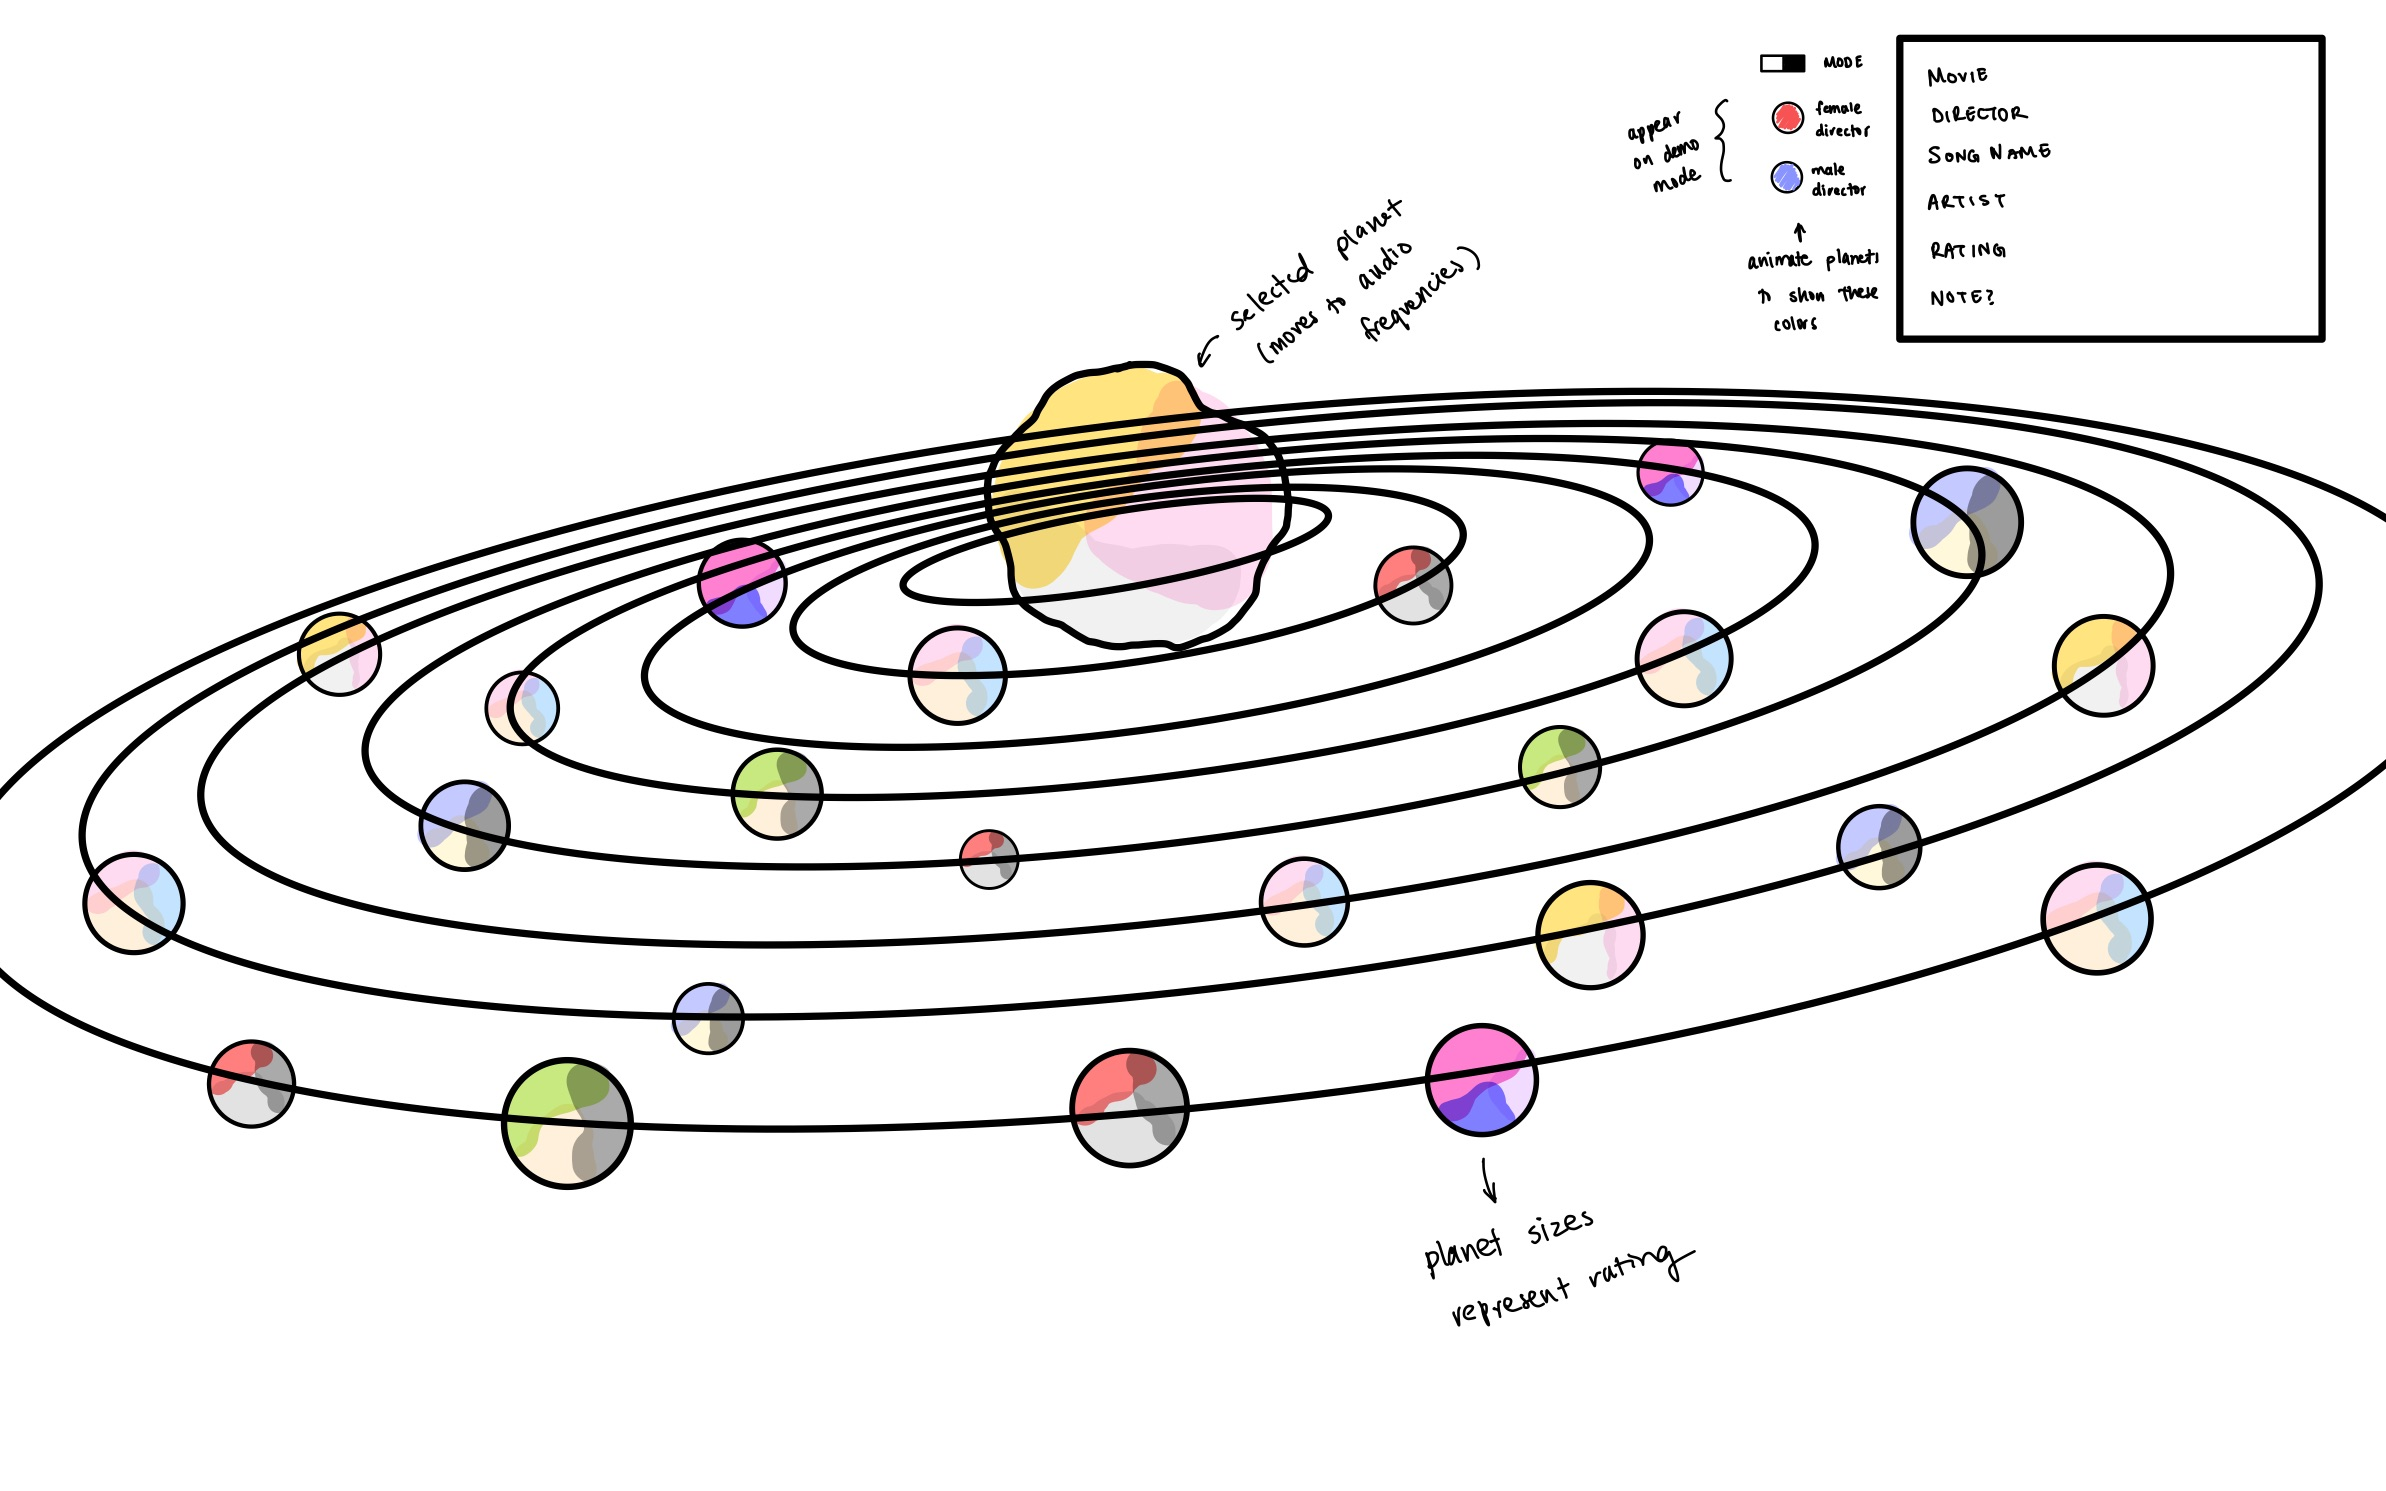 MODE
female
director
male
director
appear
on demo
mode
animate planets
to show these
colors
MOVIE
DIRECTOR
SONG NAME
ARTIST
RATING
NOTE?
selected planet
(moves to audio
frequencies)
planet sizes
represent rating